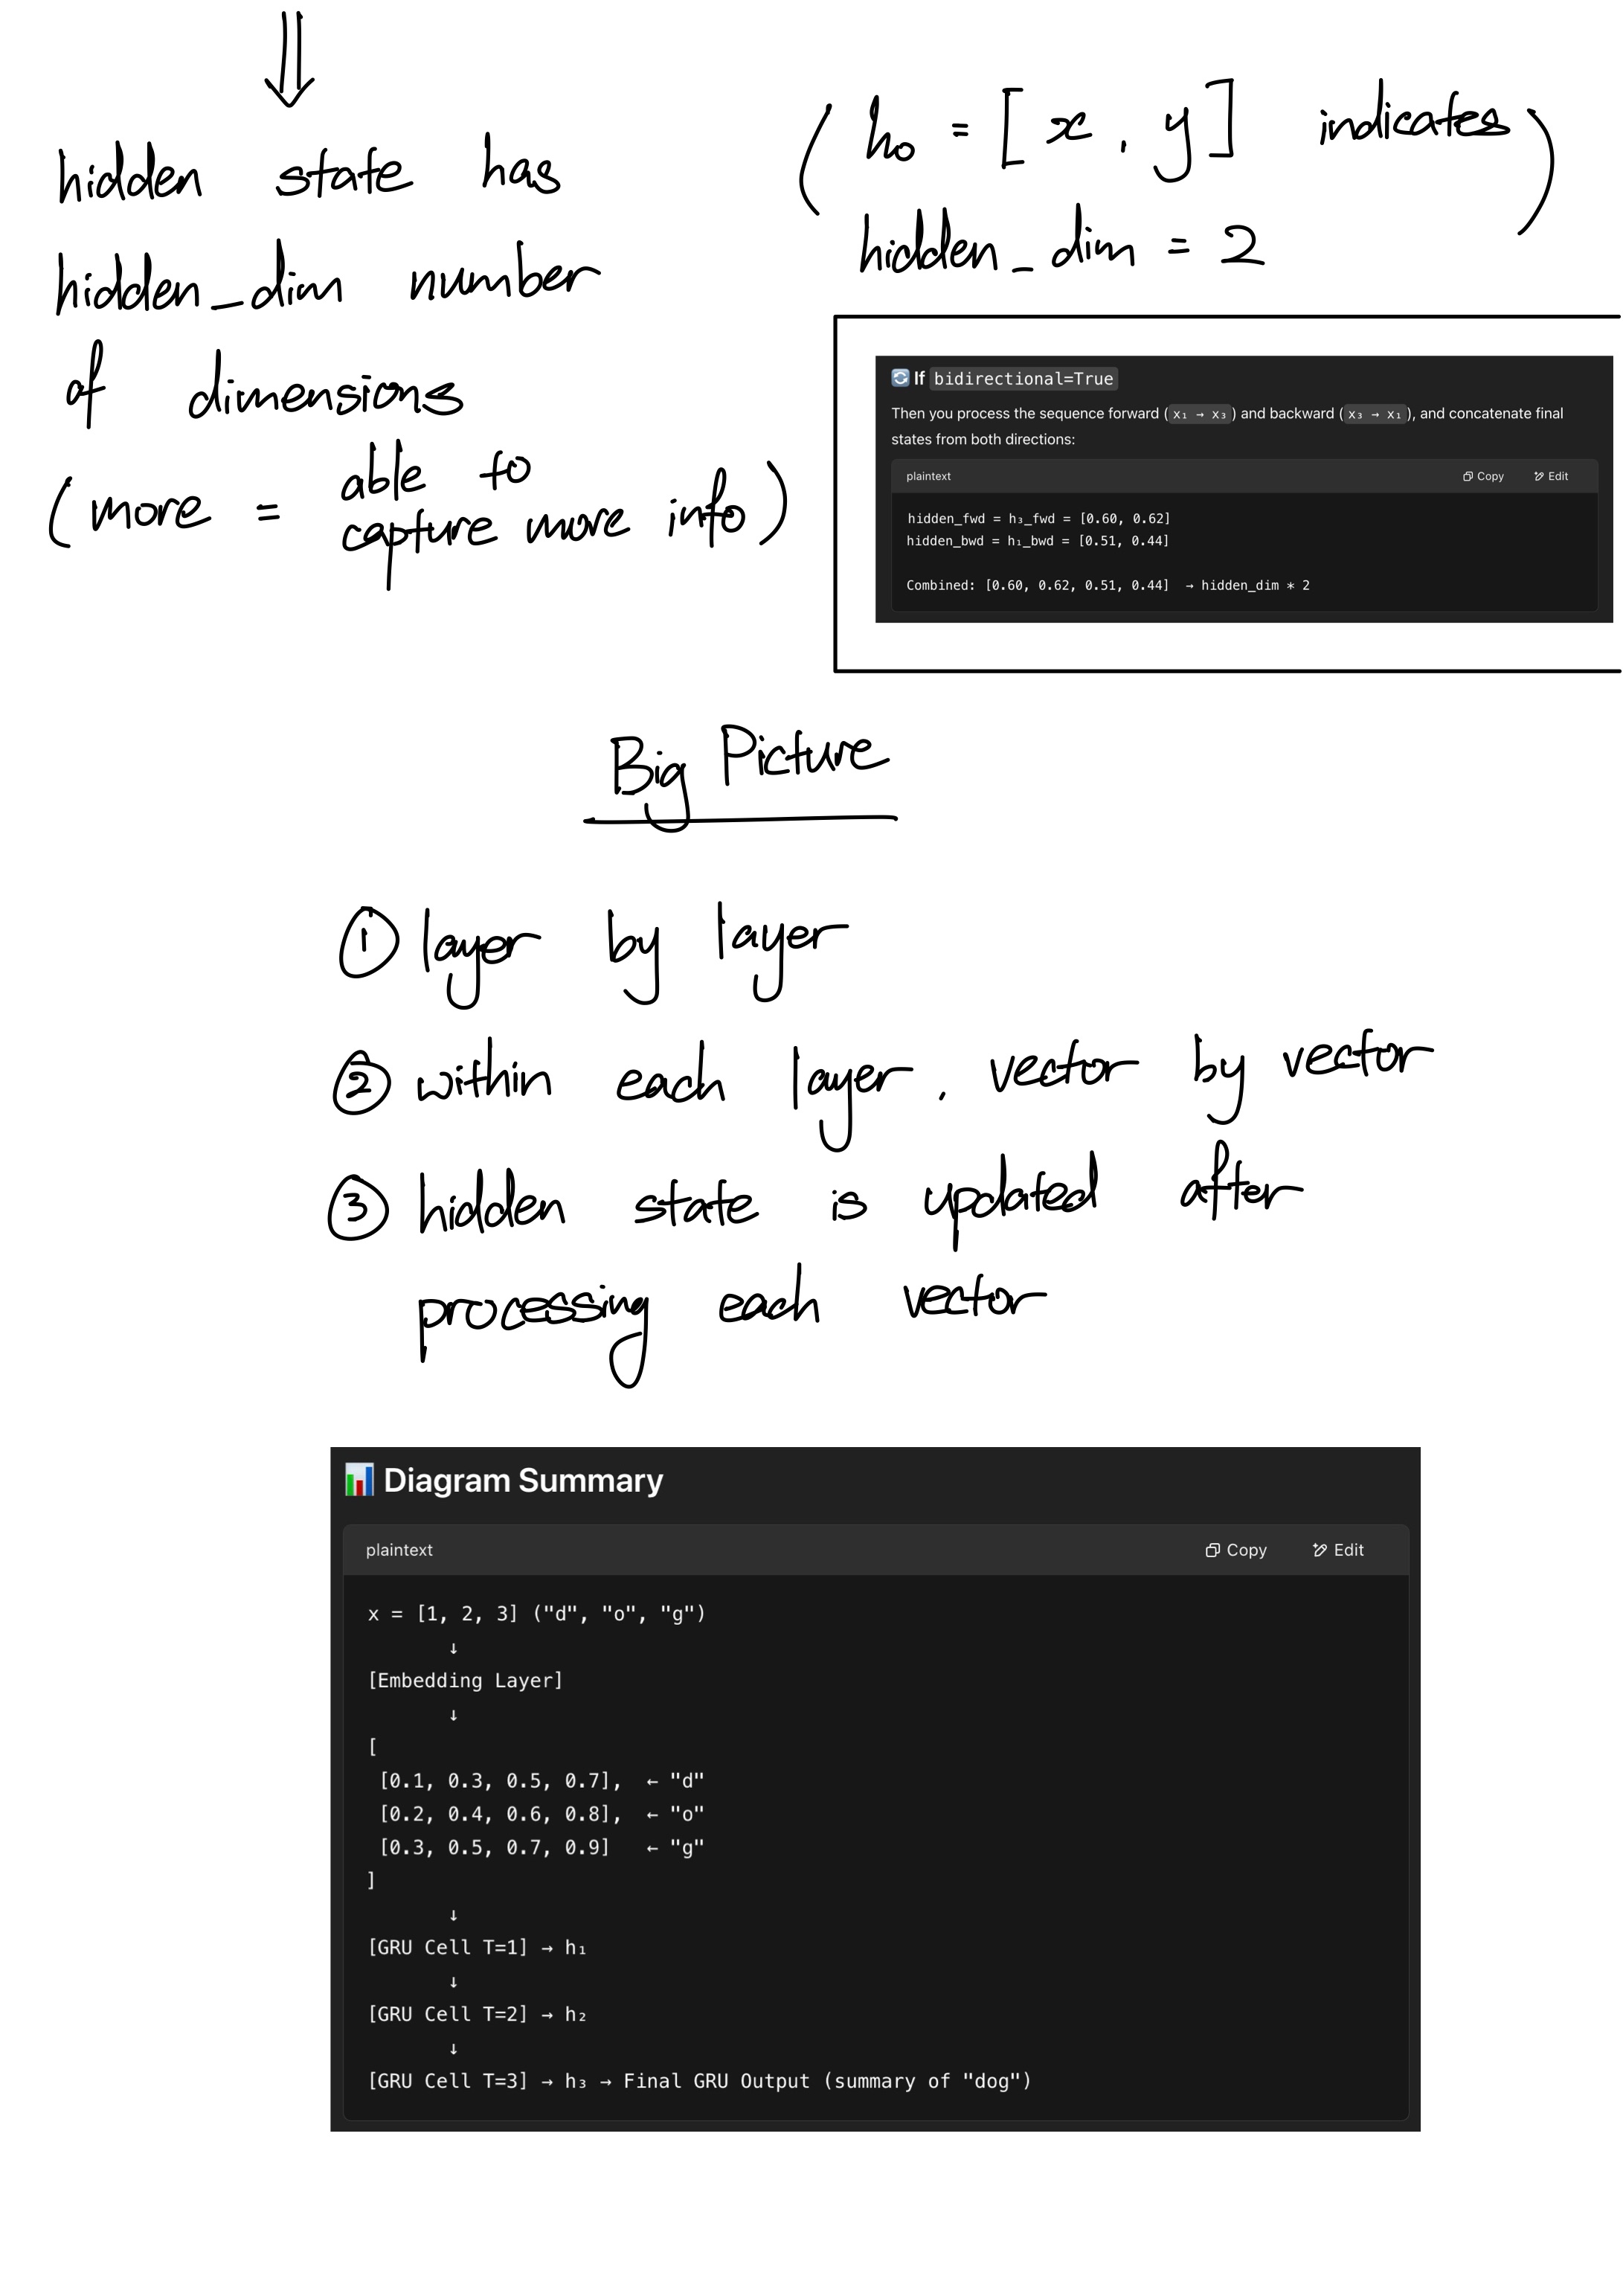 hidden state has
hidden_dim number
of dimensions
(more = able to
capture more info)
(h₀ = [x, y] indicates
hidden_dim = 2)
If bidirectional=True
Then you process the sequence forward (x₁ → x₃) and backward (x₃ → x₁), and concatenate final
states from both directions:
plaintext Copy Edit
hidden_fwd = h₃_fwd = [0.60, 0.62]
hidden_bwd = h₁_bwd = [0.51, 0.44]
Combined: [0.60, 0.62, 0.51, 0.44] → hidden_dim * 2
Big Picture
① layer by layer
② within each layer, vector by vector
③ hidden state is updated after
processing each vector
Diagram Summary
plaintext Copy Edit
x = [1, 2, 3] ("d", "o", "g")
↓
[Embedding Layer]
↓
[
[0.1, 0.3, 0.5, 0.7], ← "d"
[0.2, 0.4, 0.6, 0.8], ← "o"
[0.3, 0.5, 0.7, 0.9] ← "g"
]
↓
[GRU Cell T=1] → h₁
↓
[GRU Cell T=2] → h₂
↓
[GRU Cell T=3] → h₃ → Final GRU Output (summary of "dog")